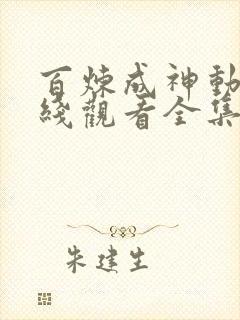 百炼成神動
綫觀看全集
朱建生